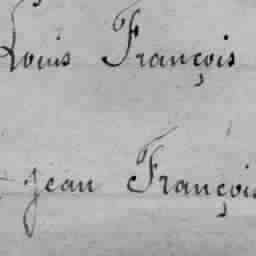 Louis François
Jean François